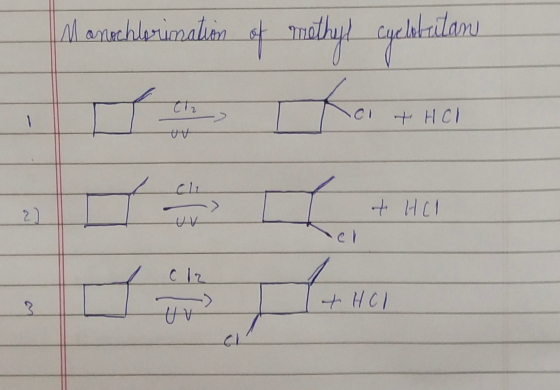 Monochlorination of methyl cyclobutane
1 Cl2 UV Cl + HCl
2) Cl2 UV Cl + HCl
3 Cl2 UV Cl + HCl